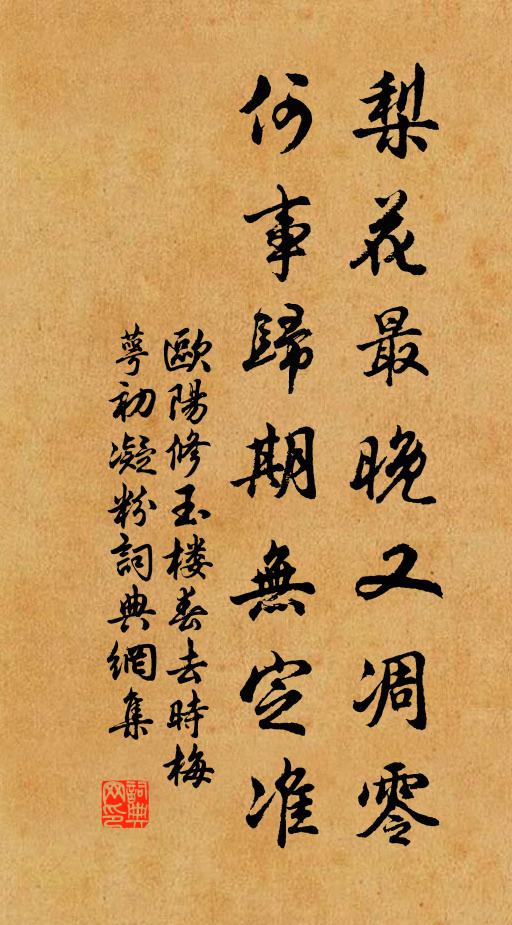 梨花最晚又凋零
何事歸期無定准
歐陽修玉楼春去時梅
萼初凝粉詞典網集
詞典网印